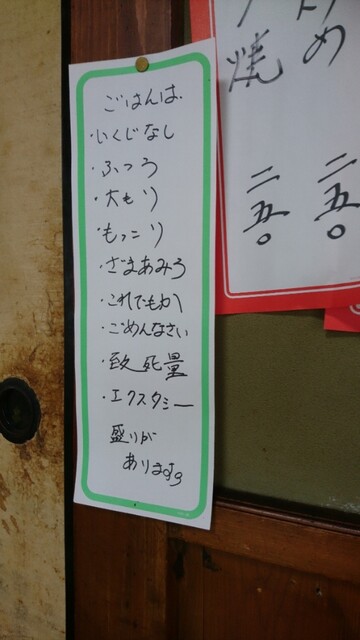 ごはんは
・いくじなし
・ふつう
・大もり
・もっこり
・ざまあみろ
・これでもか
・ごめんなさい
・致死量
・エクスタシー
盛りが
あります。
め 二五〇
焼 二五〇